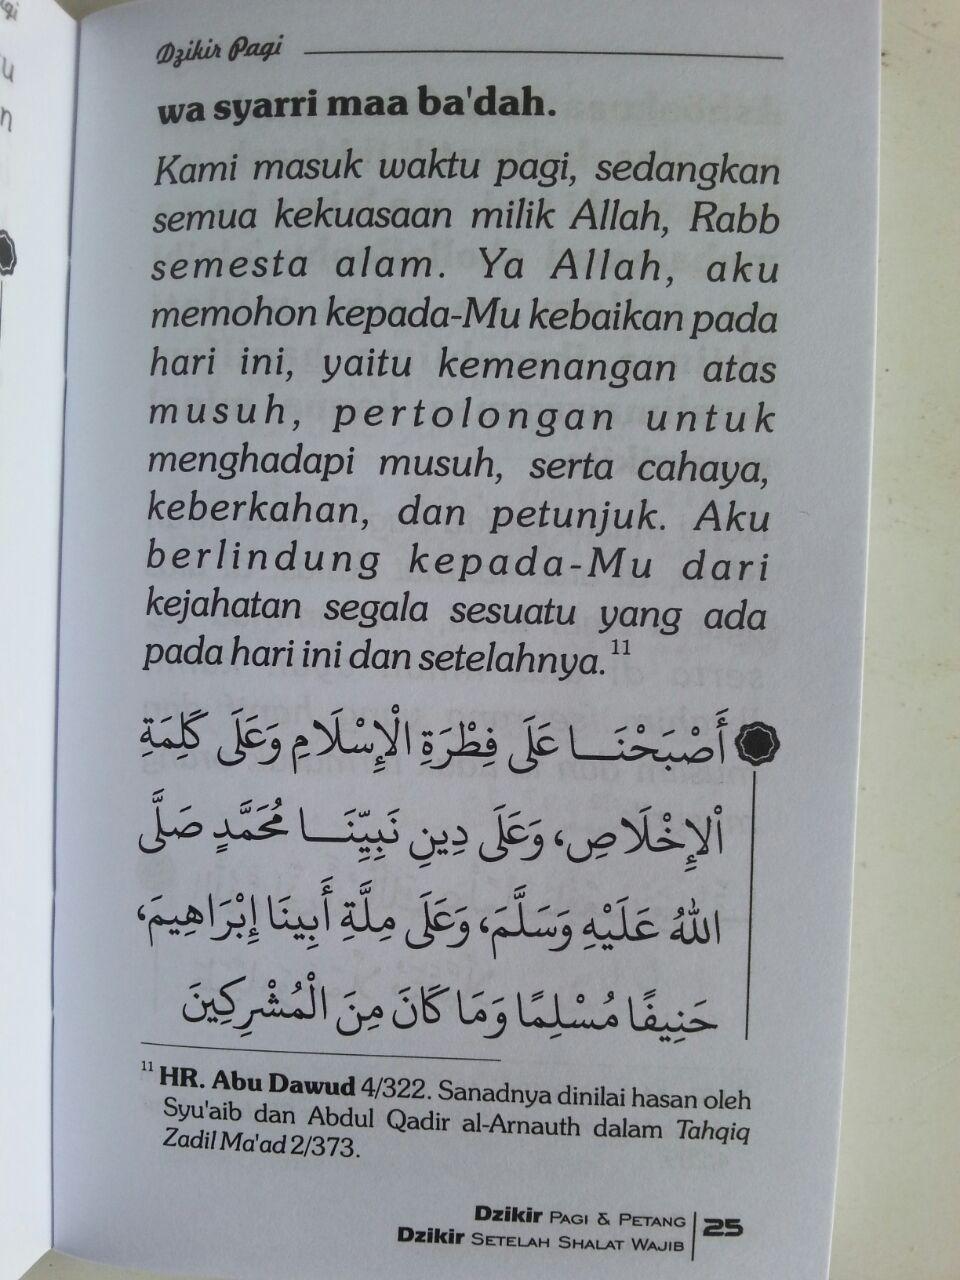 Dzikir Pagi
wa syarri maa ba'dah.
Kami masuk waktu pagi, sedangkan
semua kekuasaan milik Allah, Rabb
semesta alam. Ya Allah, aku
memohon kepada-Mu kebaikan pada
hari ini, yaitu kemenangan atas
musuh, pertolongan untuk
menghadapi musuh, serta cahaya,
keberkahan, dan petunjuk. Aku
berlindung kepada-Mu dari
kejahatan segala sesuatu yang ada
pada hari ini dan setelahnya.11
أَصْبَحْنَـــا عَلَى فِطْرَةِ الْإِسْلَامِ وَعَلَى كَلِمَةِ
اْلإِخْلَاصِ، وَعَلَى دِينِ نَبِيِّنَـــا مُحَمَّدٍ صَلَّى
اللهُ عَلَيْهِ وَسَلَّمَ، وَعَلَى مِلَّةِ أَبِينَا إِبْرَاهِيمَ،
حَنِيفًا مُسْلِمًا وَمَا كَانَ مِنَ الْمُشْرِكِينَ
11 HR. Abu Dawud 4/322. Sanadnya dinilai hasan oleh
Syu'aib dan Abdul Qadir al-Arnauth dalam Tahqiq
Zadil Ma'ad 2/373.
Dzikir PAGI & PETANG
Dzikir SETELAH SHALAT WAJIB
25